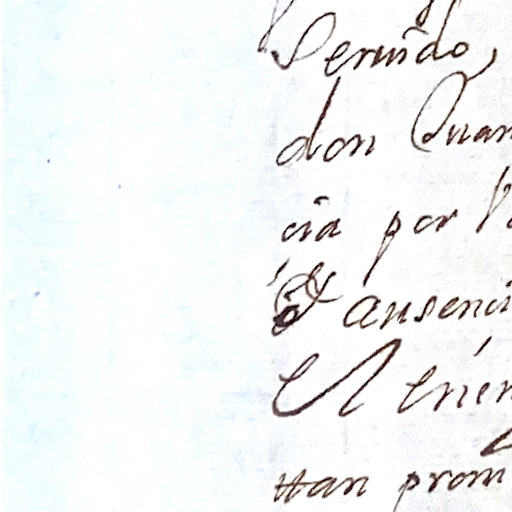 Seruido,
don Juan
cia por
ausenci
El
ttan prom